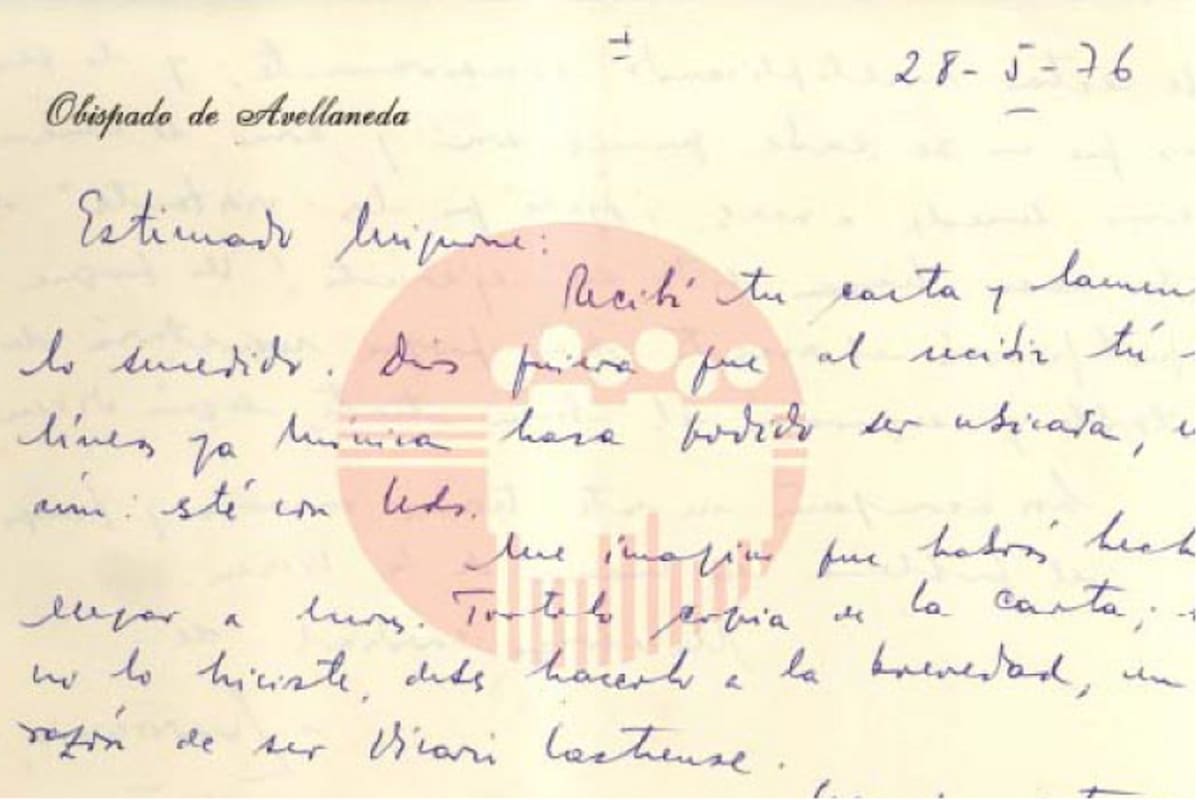 28-5-76
Obispado de Avellaneda
Estimado Mignone:
Recibí tu carta y lamen
lo sucedido. Dios quiera que al recibir tú
líneas ya Mónica haya podido ser ubicada,
aún: esté con Uds.
Me imagino que habrás hech
llegar a Mons. Tortolo copia de la carta;
no lo hiciste, debes hacerlo a la brevedad, en
razón de ser Vicario Castrense.